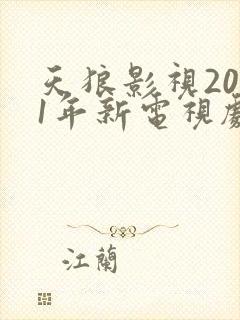 天狼影視20
1年新電視劇
江蘭